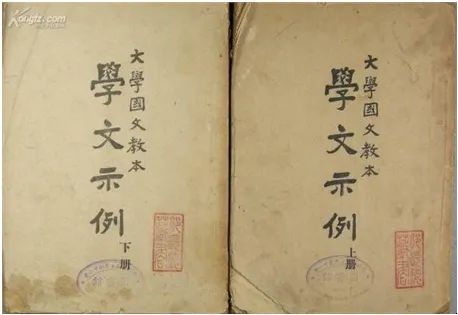 Kongfz.com
大學國文教本
學文示例
下册
大學國文教本
學文示例
上册